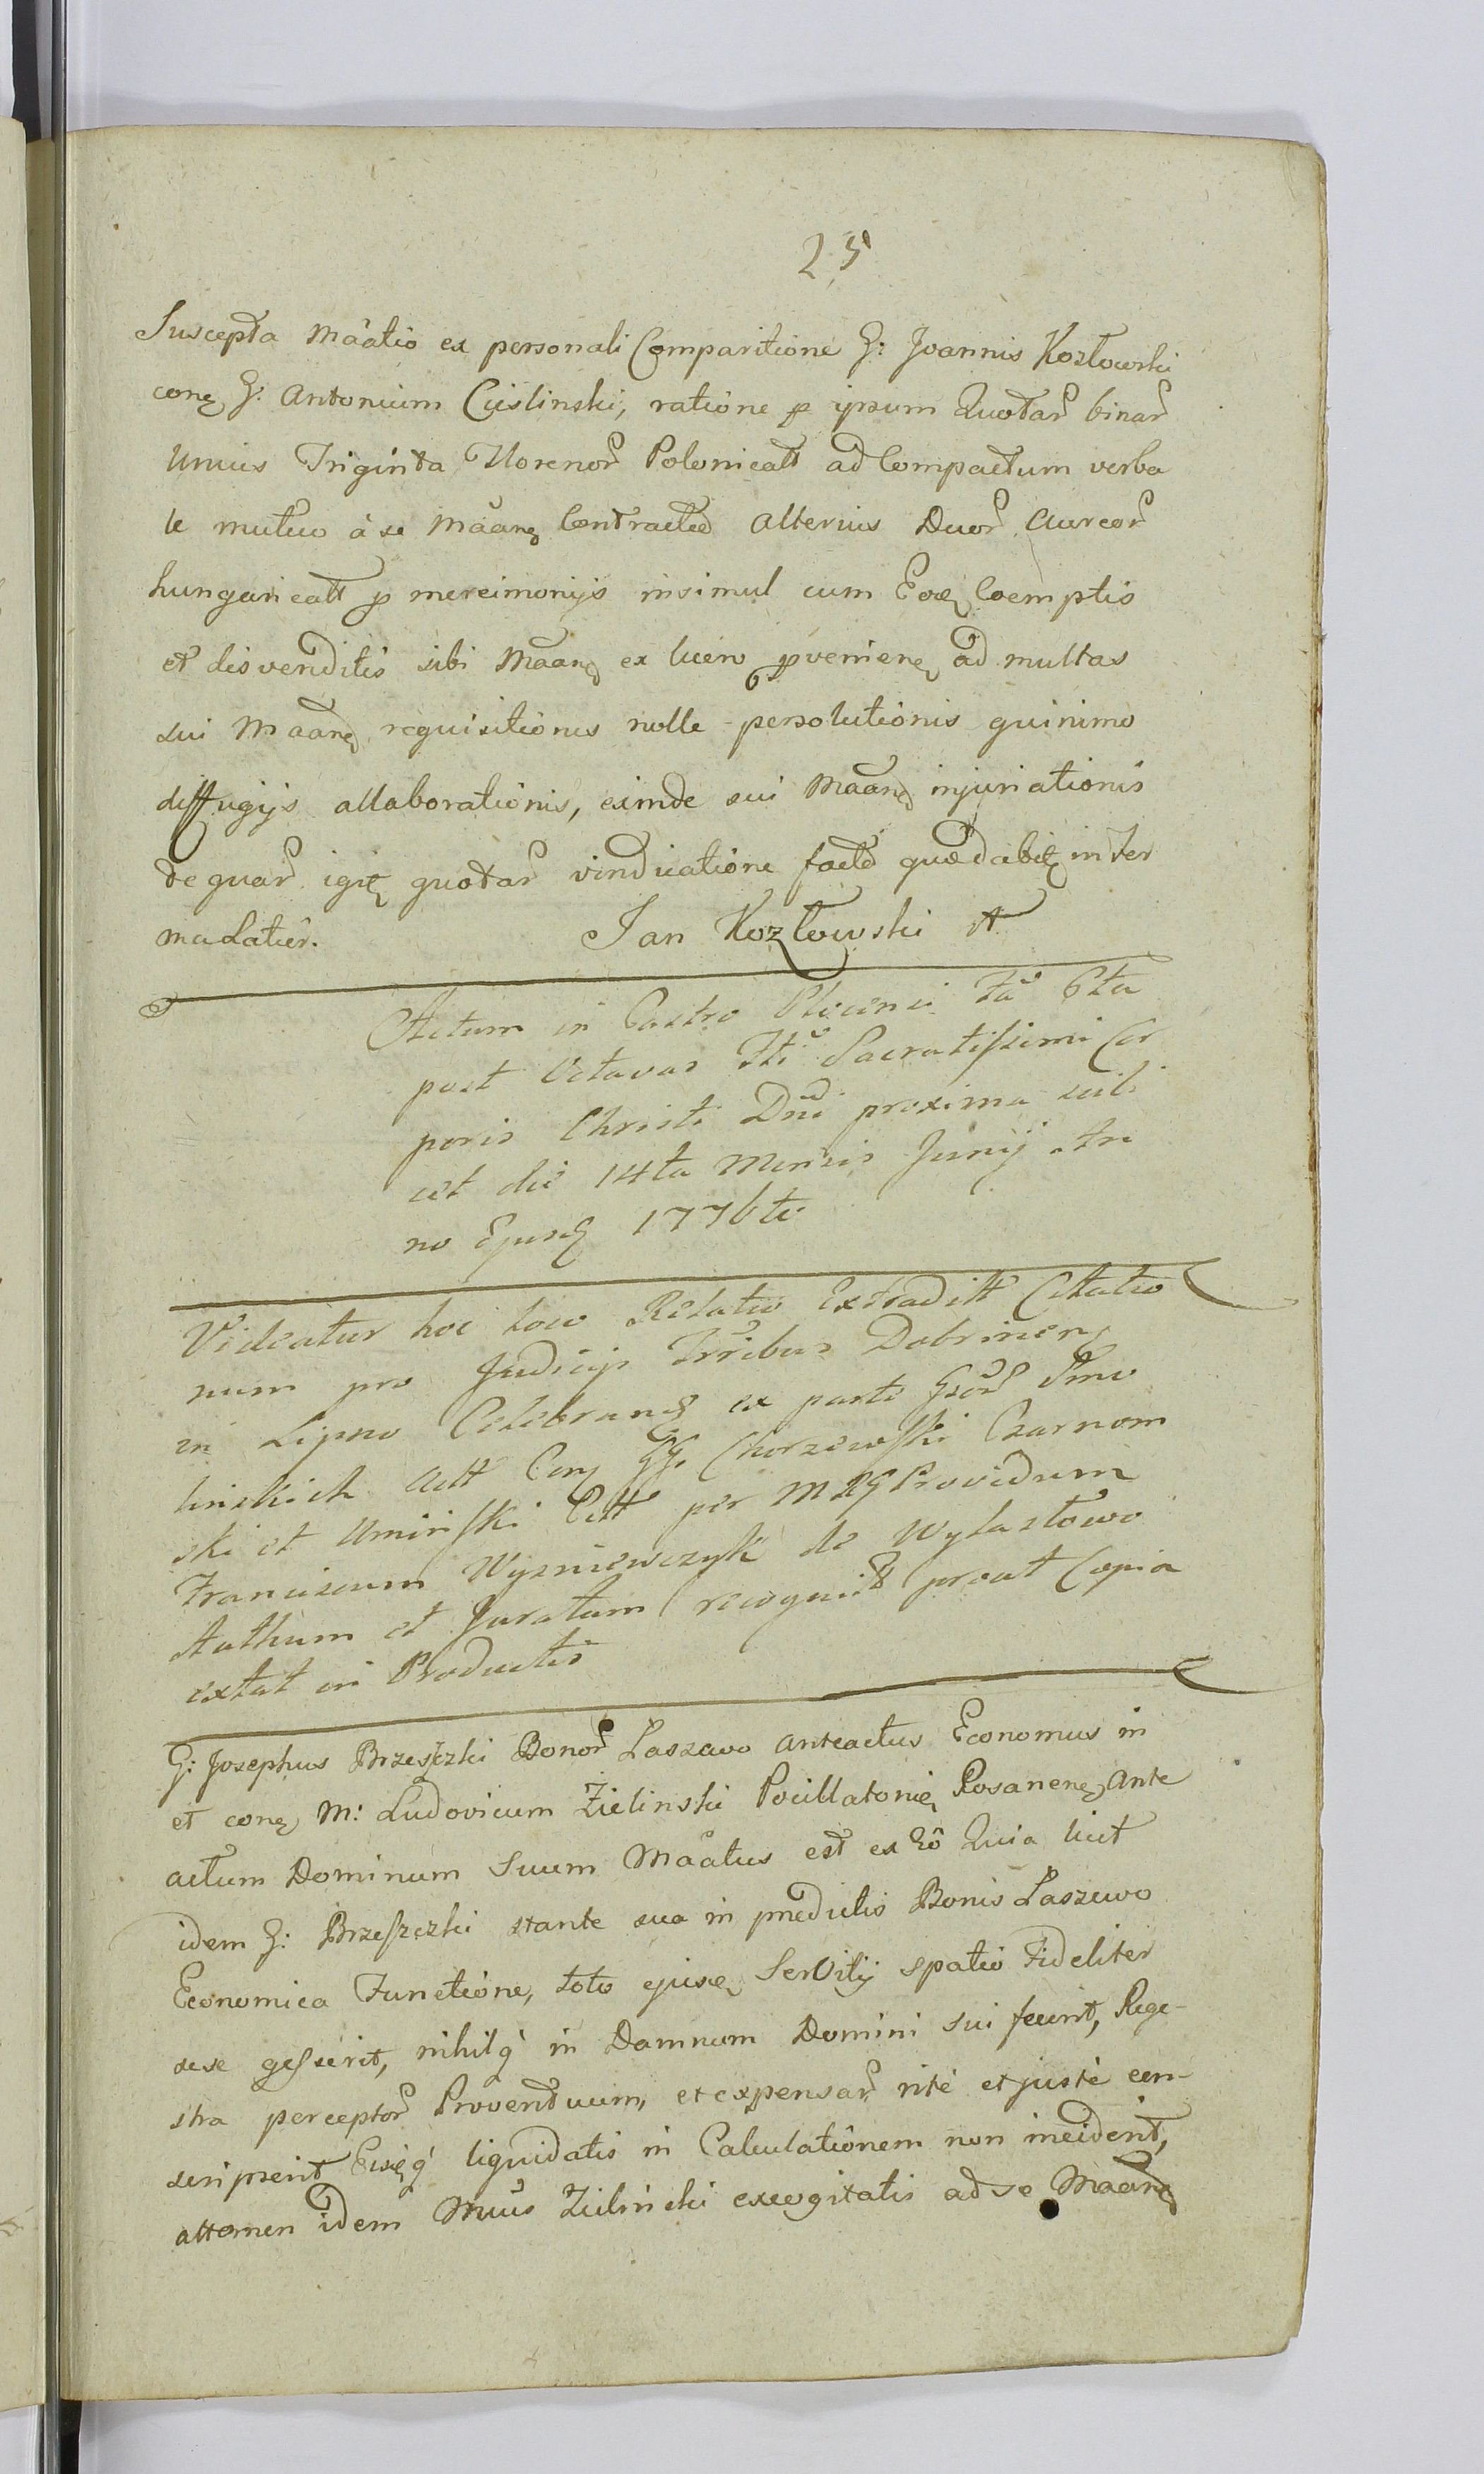 25
Suscepta Maâtio ex personali Comparitione G: Joannis Kozłowski
conɇ G. Antonium Cieslinski, ratione p ipsum Quotar binar
Unius Triginta Florenor Polonicatt ad Compactum verba
le mutuo à se Maanɇ Contractæ alterius Duor Aureor
hungaricatt p mercimonijs insimul cum Eodɇ Coemptis
et disvenditis sibi Maanɇ ex lucro pvenienɇ ad multas
sui Maanɇ requisitiones nolle persolutionis quinimo
diffugijs allaborationis, exinde sui Maanɇ injuriationis
de quar igitɇ quotar vindicatione facta quædabitɇ inter
maLatur. Jan Kozłowski
Actum in Castro Plocensi Fâ 6ta
post Octavas Fti Sacratissimi Cor
poris Christi Dni proxima scili
cet die 14ta Mensis Junij An
no Ejusdɇ 1776to
Videatur hoc loco Relatio Extraditt Citatio
num pro Judicijs Trribus Dobrinenɇ
in Lipno Celebrandɇ ex parte Gsor Smo
linskich Actt Conɇ GG. Chorzewski Czarnom
ski et Uminski Citt per M et G Providum
Franciscum Wyzniewczyk de Wylazłowo
Authum et Juratum recognit prout Copia
extat in Productis
G: Josephus Brzeszczki Bonor Laszewo anteactus Economus in
et conɇ M: Ludovicum Zielinski Pocillatoriɇ Rosanenɇ ante
actum Dominum Suum Maâtus est ex Eô Quia licet
idem G: Brzeszczki stante sua in prædictis Bonis Laszewo
Economica Functione, toto ejusdɇ Servitij spatio Fideliter
sese gesserit, nihilq' in Damnum Domini sui fecerit, Rege-
stra perceptor Proventuum, et expensar ritè et justè con-
scripserit Eisdɇq' liquidatis in Calculationem non inciderit,
attamen idem Mûus Zielinski excogitatis ad se Maanɇ